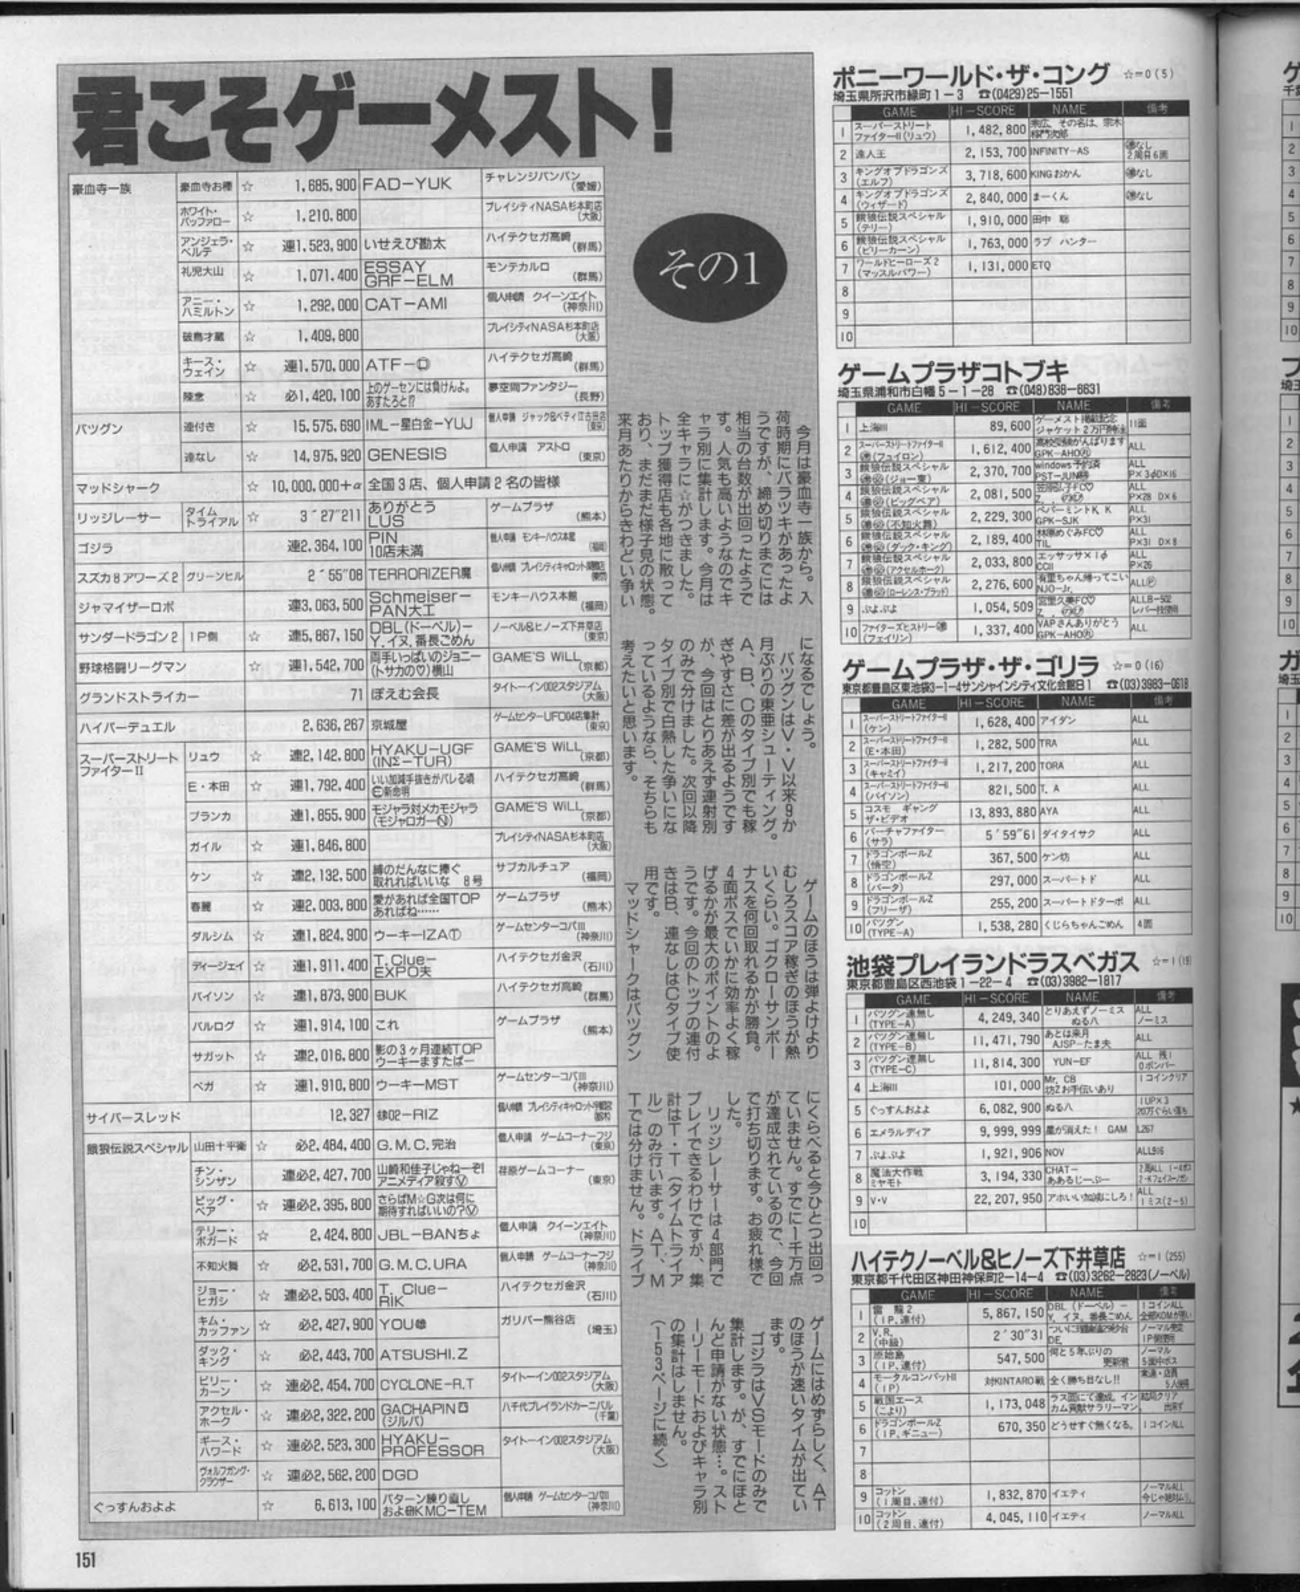 君こそゲーメスト!
その1
豪血寺一族 豪血寺お種 ☆ 1,685,900 FAD-YUK チャレンジバンバン(愛媛)
ホワイト・バッファロー ☆ 1,210,800 プレイシティNASA杉本町店(大阪)
アンジェラ・ベルテ ☆ 連1,523,900 いせえび勘太 ハイテクセガ高崎(群馬)
礼児大山 ☆ 1,071,400 ESSAY GRF-ELM モンテカルロ(群馬)
アニー・ハミルトン ☆ 1,292,000 CAT-AMI 個人申請 クイーンエイト(神奈川)
破鳥才蔵 ☆ 1,409,800 プレイシティNASA杉本町店(大阪)
キース・ウェイン ☆ 連1,570,000 ATF-ロ ハイテクセガ高崎(群馬)
陳念 ☆ 必1,420,100 上のゲーセンには負けんよ。あすたろと!? 夢空間ファンタジー(長野)
バツグン 連付き ☆ 15,575,690 IML-星白金-YUJ 個人申請 ジャック&ベティ江古田店(東京)
連なし ☆ 14,975,920 GENESIS 個人申請 アストロ(東京)
マッドシャーク ☆ 10,000,000+α 全国3店、個人申請2名の皆様
リッジレーサー タイムトライアル ☆ 3´27″211 ありがとう LUS ゲームプラザ(熊本)
ゴジラ 連2,364,100 PIN 10店未満 個人申請 モンキーハウス本館(福岡)
スズカ8アワーズ2 グリーンヒル 2´55″08 TERRORIZER魔 個人申請 プレイシティキャロット
ジャマイザーロボ 連3,063,500 Schmeiser-PAN大工 モンキーハウス本館(福岡)
サンダードラゴン2 1P側 ☆ 連5,867,150 DBL(ドーベル)-Y.イヌ,番長ごめん ノーベル&ヒノーズ下井草店(東京)
野球格闘リーグマン ☆ 連1,542,700 両手いっぱいのジョニー(トサカの♡)横山 GAME'S WiLL(京都)
グランドストライカー 71 ぽえむ会長 タイトーイン002スタジアム(大阪)
ハイパーデュエル 2,636,267 京城屋 ゲームセンターUFO04店集計(東京)
スーパーストリートファイターII リュウ ☆ 連2,142,800 HYAKU-UGF(INΣ-TUR) GAME'S WiLL(京都)
E・本田 ☆ 連1,792,400 いい加減手抜きがバレる頃 ハイテクセガ高崎(群馬)
ブランカ 連1,855,900 モジャラ対メカモジャラ(モジャロガーⓃ) GAME'S WiLL(京都)
ガイル ☆ 連1,846,800 プレイシティNASA杉本町店(大阪)
ケン ☆ 連2,132,500 縛のだんなに捧ぐ 取れればいいな 8号 サブカルチュア(福岡)
春麗 ☆ 連2,003,800 愛があれば全国TOP あればね…… ゲームプラザ(熊本)
ダルシム ☆ 連1,824,900 ウーキーIZAⓉ ゲームセンターコパIII(神奈川)
ディージェイ ☆ 連1,911,400 T.Clue-EXPO夫 ハイテクセガ金沢(石川)
バイソン ☆ 連1,873,900 BUK ハイテクセガ高崎(群馬)
バルログ ☆ 連1,914,100 これ ゲームプラザ(熊本)
サガット ☆ 連2,016,800 影の3ヶ月連続TOP ウーキーますたばー
ベガ ☆ 連1,910,800 ウーキーMST ゲームセンターコパIII(神奈川)
サイバースレッド 12,327 02-RIZ 個人申請 プレイシティキャロット
餓狼伝説スペシャル 山田十平衛 ☆ 必2,484,400 G.M.C.完治 個人申請 ゲームコーナーフジ(東京)
チン・シンザン 連必2,427,700 山崎和佳子じゃねーぞ! アニメディア殺すⓋ 荏原ゲームコーナー(東京)
ビッグ・ベア ☆ 連必2,395,800 さらばM☆G次は何に期待すればいいの?Ⓥ
テリー・ボガード ☆ 2,424,800 JBL-BANちょ 個人申請 クイーンエイト(神奈川)
不知火舞 ☆ 必2,531,700 G.M.C.URA 個人申請 ゲームコーナーフジ(東京)
ジョー・ヒガシ ☆ 連必2,503,400 T. Clue-RIK ハイテクセガ金沢(石川)
キム・カッファン ☆ 必2,427,900 YOU ガリバー熊谷店(埼玉)
ダック・キング ☆ 必2,443,700 ATSUSHI.Z
ビリー・カーン ☆ 連必2,454,700 CYCLONE-R.T タイトーイン002スタジアム(大阪)
アクセル・ホーク ☆ 連必2,322,200 GACHAPIN(ジルバ) 八千代プレイランドカーニバル(千葉)
ギース・ハワード ☆ 連必2,523,300 HYAKU-PROFESSOR タイトーイン002スタジアム(大阪)
ヴォルフガング・クラウザー ☆ 連必2,562,200 DGD
ぐっすんおよよ ☆ 6,613,100 パターン練り直し およKMC-TEM 個人申請 ゲームセンターコパIII(神奈川)
今月は豪血寺一族から。入荷時期にバラツキがあったようですが、締め切りまでには相当の台数が出回ったようです。人気も高いようなのでキャラ別に集計します。今月は全キャラに☆がつきました。トップ獲得店も各地に散っており、まだまだ様子見の状態。来月あたりからきわどい争いになるでしょう。
バツグンはV・V以来9か月ぶりの東亜シューティング。A、B、Cのタイプ別でも稼ぎやすさに差が出るようですが、今回はとりあえず連射別のみで分けました。次回以降タイプ別で白熱した争いになっているようなら、そちらも考えたいと思います。
ゲームのほうは弾よけよりむしろスコア稼ぎのほうが熱いくらい。ゴクローサンボーナスを何回取れるかが勝負。4面ボスでいかに効率よく稼げるかが最大のポイントのようです。今回のトップの連付きはB、連なしはCタイプ使用です。
マッドシャークはバツグンにくらべると今ひとつ出回っていません。すでに1千万点が達成されているので、今回で打ち切ります。お疲れ様でした。
リッジレーサーは4部門でプレイできるわけですが、集計はT・T(タイムトライアル)のみ行います。AT、MTでは分けません。ドライブゲームにはめずらしく、ATのほうが速いタイムが出ています。
ゴジラはVSモードのみで集計します。が、すでにほとんど申請がない状態…。ストーリーモードおよびキャラ別の集計はしません。
(153ページに続く)
ポニーワールド・ザ・コング ☆=0(5)
埼玉県所沢市緑町1-3 ☎(0429)25-1551
GAME HI-SCORE NAME 備考
1 スーパーストリートファイターII(リュウ) 1,482,800
2 達人王 2,153,700 INFINITY-AS 連なし 2周目6面
3 キングオブドラゴンズ(エルフ) 3,718,600 KINGおかん 連なし
4 キングオブドラゴンズ(ウィザード) 2,840,000 まーくん 連なし
5 餓狼伝説スペシャル(テリー) 1,910,000 田中 聡
6 餓狼伝説スペシャル(ビリーカーン) 1,763,000 ラブ ハンター
7 ワールドヒーローズ2(マッスルパワー) 1,131,000 ETQ
8
9
10
ゲームプラザコトブキ
埼玉県浦和市白幡5-1-28 ☎(048)838-6631
GAME HI-SCORE NAME 備考
1 上海III 89,600 ゲーメスト掲載記念 11面
2 スーパーストリートファイターII(フェイロン) 1,612,400 高校受験がんばります ALL
3 餓狼伝説スペシャル(ジョー東) 2,370,700 windows予約済 ALL P×3 D×16
4 餓狼伝説スペシャル(ビッグベア) 2,081,500 ALL P×28 D×6
5 餓狼伝説スペシャル(不知火舞) 2,229,300 ペパーミントK,K GPK-SJK ALL P×31
6 餓狼伝説スペシャル(ダック・キング) 2,189,400 林原めぐみFC♡ TIL ALL P×31 D×8
7 餓狼伝説スペシャル(アクセルホーク) 2,033,800 エッサッサ×1φ CCII ALL P×26
8 餓狼伝説スペシャル(ローレンス・ブラッド) 2,276,600 有里ちゃん帰ってこい NJO-Jr. ALLⓅ
9 ぷよぷよ 1,054,509 宮里久美FC♡ ALL8-502
10 ファイターズヒストリー(フェイリン) 1,337,400 VAPさんありがとう ALL
ゲームプラザ・ザ・ゴリラ ☆=0(16)
東京都豊島区東池袋3-1-4サンシャインシティ文化会館B1 ☎(03)3983-0618
GAME HI-SCORE NAME 備考
1 スーパーストリートファイターII(ケン) 1,628,400 アイダン ALL
2 スーパーストリートファイターII(E・本田) 1,282,500 TRA ALL
3 スーパーストリートファイターII(キャミイ) 1,217,200 TORA ALL
4 スーパーストリートファイターII(バイソン) 821,500 T.A ALL
5 コスモ ギャング ザ・ビデオ 13,893,880 AYA ALL
6 バーチャファイター(サラ) 5´59″61 ダイタイサク ALL
7 ドラゴンボールZ(悟空) 367,500 ケン坊 ALL
8 ドラゴンボールZ(バータ) 297,000 スーパートド ALL
9 ドラゴンボールZ(フリーザ) 255,200 スーパートドターボ ALL
10 バツグン(TYPE-A) 1,538,280 くじらちゃんごめん 4面
池袋プレイランドラスベガス ☆=1(19)
東京都豊島区西池袋1-22-4 ☎(03)3982-1817
GAME HI-SCORE NAME 備考
1 バツグン連無し(TYPE-A) 4,249,340 とりあえずノーミス ぬる八 ALL ノーミス
2 バツグン連無し(TYPE-B) 11,471,790 あとは来月 AJSP-たま夫 ALL
3 バツグン連無し(TYPE-C) 11,814,300 YUN-EF ALL 残1 0ボンバー
4 上海III 101,000 Mr. CB 坊Zお手伝いあり 1コインクリア
5 ぐっすんおよよ 6,082,900 ぬる八 1UP×3 20万ぐらい落ち
6 エメラルディア 9,999,999 星が消えた! GAM L267
7 ぷよぷよ 1,921,906 NOV ALL916
8 魔法大作戦 ミヤモト 3,194,330 CHAT-ああるじーぷー
9 V・V 22,207,950 アホいい加減にしろ! ALL 1ミス(2-5)
10
ハイテクノーベル&ヒノーズ下井草店 ☆=1(255)
東京都千代田区神田神保町2-14-4 ☎(03)3262-2823(ノーベル)
GAME HI-SCORE NAME 備考
1 雷龍2(1P,連付) 5,867,150 DBL(ドーベル)-Y.イヌ 番長ごめん 1コインALL
2 V.R.(中級) 2´30″31
3 原始島(1P,連付) 547,500 何と5年ぶりの更新君 ノーマル 5面中ボス
4 モータルコンバットII(1P) 対KINTARO戦 全く勝ち目なし!!
5 戦国エース(こより) 1,173,048 ラス面にて達成,インカム貢献サラリーマン
6 ドラゴンボールZ(1P,ギニュー) 670,350 どうせすぐ無くなる。 1コインALL
7
8
9 コットン(1周目,連付) 1,832,870 イエティ ノーマルALL
10 コットン(2周目,連付) 4,045,110 イエティ ノーマルALL
151